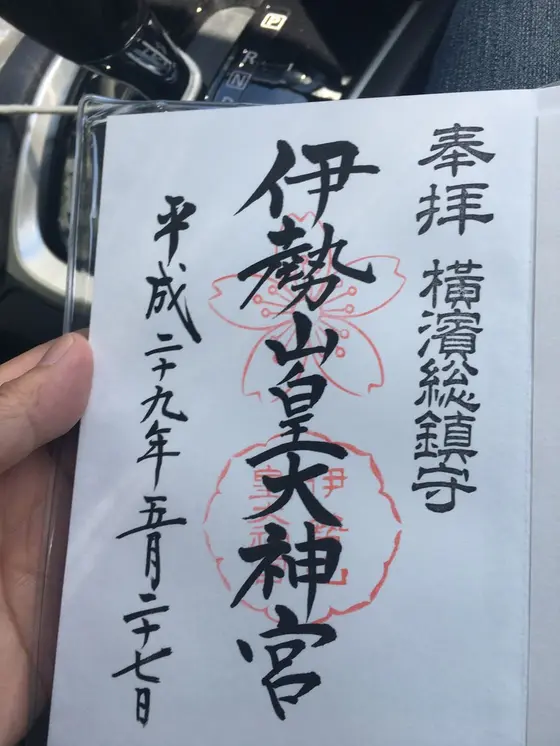 奉拝 横濱総鎮守
伊勢山皇大神宮
平成二十九年五月二十七日
P
R
N